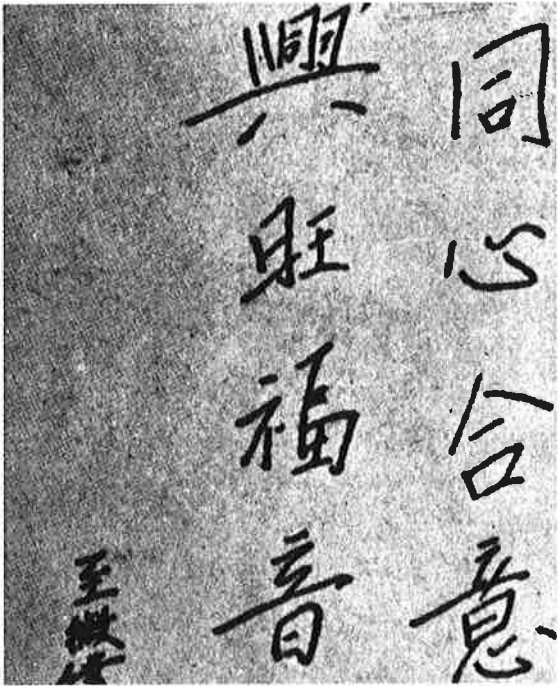 同心合意
興旺福音